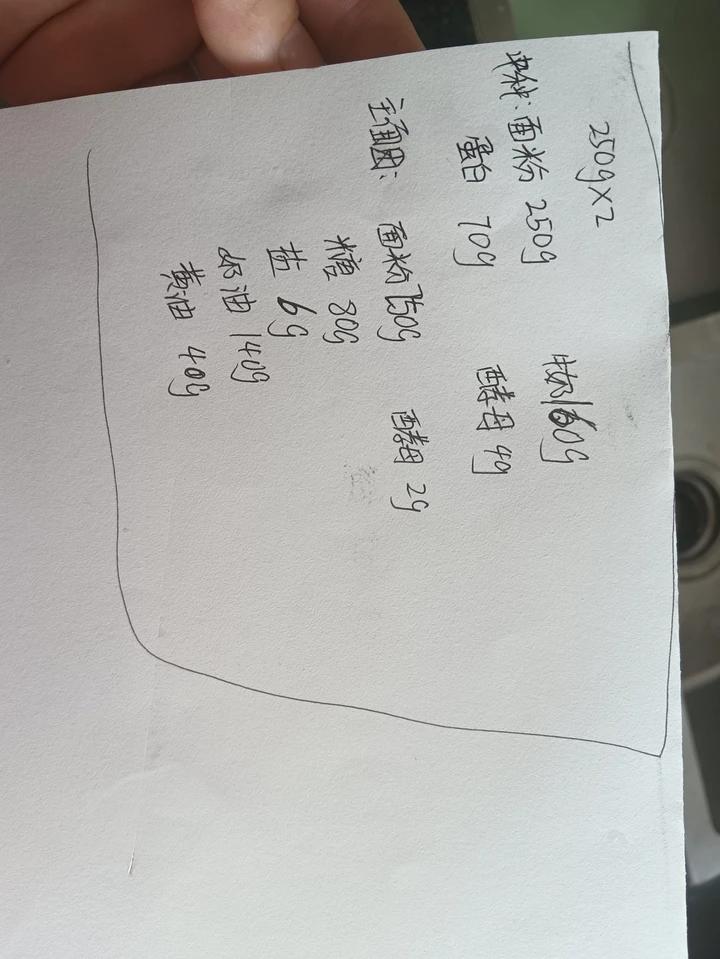 250g×2
中种: 面粉 250g 牛奶160g
蛋白 70g 酵母 4g
主面团: 面粉250g 酵母 2g
糖 80g
盐 6g
奶油 140g
黄油 40g